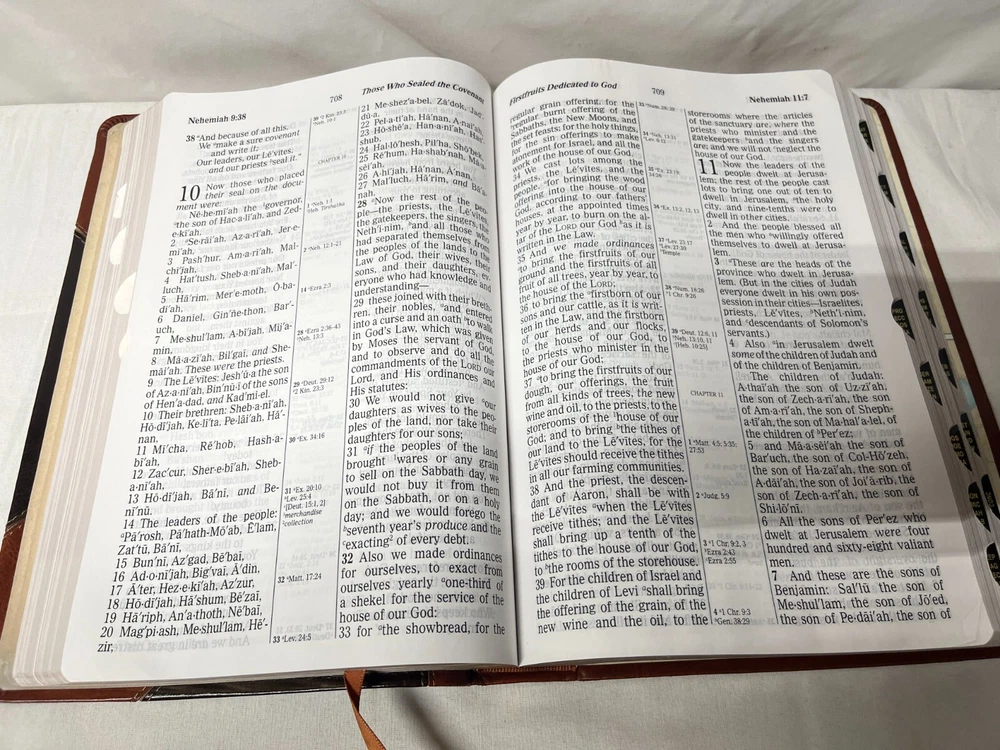 Nehemiah 9:38
708
Those Who Sealed the Covenant
38 ᵃAnd because of all this,
We ᵇmake a sure covenant
and write it;
Our leaders, our Lē′vites,
and our priests ᶜseal it."
10 Now those who placed
their seal on the docu-
ment were:
Nē·he·mī′ah the ¹governor,
ᵃthe son of Hac·a·lī′ah, and Zed-
e·kī′ah,
2 ᵃSe·rāi′ah, Az·a·rī′ah, Jer·e-
mī′ah,
3 Pash′hur, Am·a·rī′ah, Mal-
chī′jah,
4 Hat′tush, Sheb·a·nī′ah, Mal′-
luch,
5 Hā′rim, Mer′e·moth, Ō·ba-
dī′ah,
6 Daniel, Gin′ne·thon, Bar′-
uch,
7 Me·shul′lam, A·bī′jah, Mij′a-
min,
8 Mā·a·zī′ah, Bil′gai, and She-
māi′ah. These were the priests.
9 The Lē′vites: Jesh′ū·a the son
of Az·a·nī′ah, Bin′nū·i of the sons
of Hen′a·dad, and Kad′mi·el.
10 Their brethren: Sheb·a·nī′ah,
Hō·dī′jah, Ke·lī′ta, Pe·lāi′ah, Hā′-
nan,
11 Mī′cha, Rē′hob, Hash·a-
bī′ah,
12 Zac′cur, Sher·e·bī′ah, Sheb-
a·nī′ah,
13 Hō·dī′jah, Bā′nī, and Be-
nī′nū.
14 The leaders of the people:
ᵃPā′rosh, Pā′hath-Mō′ab, Ē′lam,
Zat′tū, Bā′nī,
15 Bun′nī, Az′gad, Bē′bai,
16 Ad·o·nī′jah, Big′vai, Ā′din,
17 Ā′ter, Hez·e·kī′ah, Az′zur,
18 Hō·dī′jah, Hā′shum, Bē′zai,
19 Hā′riph, An′a·thoth, Nē′bai,
20 Mag′pi·ash, Me·shul′lam, Hē′-
zir,
CHAPTER 10
1 ᵃNeh. 1:1
2 ᵃNeh. 12:1-21
14 ᵃEzra 2:3
28 ᵃEzra 2:36-43
ᵇNeh. 13:3
29 ᵃDeut. 29:12
ᵇ2 Kin. 23:3
30 ᵃEx. 34:16
31 ᵃEx. 20:10
ᵇLev. 25:4
ᶜ[Deut. 15:1, 2]
¹merchandise
²collection
32 ᵃMatt. 17:24
33 ᵃLev. 24:5
21 Me·shez′a·bel, Zā′dok, Jad-
dū·a,
22 Pel·a·tī′ah, Hā′nan, A·nāi′ah,
23 Hō·shē′a, Han·a·nī′ah, Has′-
shub,
24 Hal·lō′hesh, Pil′ha, Shō′bek,
25 Rē′hum, Ha·shab′nah, Mā-
sēi′ah,
26 A·hī′jah, Hā′nan, Ā′nan,
27 Mal′luch, Hā′rim, and Bā′a-
nah.
28 ᵃNow the rest of the peo-
ple—the priests, the Lē′vites,
the gatekeepers, the singers, the
Neth′i·nim, ᵇand all those who
had separated themselves from
the peoples of the lands to the
Law of God, their wives, their
sons, and their daughters, ev-
eryone who had knowledge and
understanding—
29 these joined with their breth-
ren, their nobles, ᵃand entered
into a curse and an oath ᵇto walk
in God's Law, which was given
by Moses the servant of God,
and to observe and do all the
commandments of the LORD our
Lord, and His ordinances and
His statutes:
30 We would not give ᵃour
daughters as wives to the peo-
ples of the land, nor take their
daughters for our sons;
31 ᵃif the peoples of the land
brought ¹wares or any grain
to sell on the Sabbath day, we
would not buy it from them
on the Sabbath, or on a holy
day; and we would forego the
ᵇseventh year's produce and the
ᶜexacting² of every debt.
32 Also we made ordinances
for ourselves, to exact from
ourselves yearly ᵃone-third of
a shekel for the service of the
house of our God:
33 for ᵃthe showbread, for the
Firstfruits Dedicated to God
709
Nehemiah 11:7
regular grain offering, for the
ᵇregular burnt offering of the
Sabbaths, the New Moons, and
the set feasts; for the holy things,
for the sin offerings to make
atonement for Israel, and all the
work of the house of our God.
34 We cast lots among the
priests, the Lē′vites, and the
people, ᵃfor bringing the wood
offering into the house of our
God, according to our fathers'
houses, at the appointed times
year by year, to burn on the al-
tar of the LORD our God ᵇas it is
written in the Law.
35 And we made ordinances
ᵃto bring the firstfruits of our
ground and the firstfruits of all
fruit of all trees, year by year, to
the house of the LORD;
36 to bring the ᵃfirstborn of our
sons and our cattle, as it is writ-
ten in the Law, and the firstborn
of our herds and our flocks,
to the house of our God, to
the priests who minister in the
house of our God;
37 ᵃto bring the firstfruits of our
dough, our offerings, the fruit
from all kinds of trees, the new
wine and oil, to the priests, to the
storerooms of the ¹house of our
God; and to bring ᵇthe tithes of
our land to the Lē′vites, for the
Lē′vites should receive the tithes
in all our farming communities.
38 And the priest, the descen-
dant of Aaron, shall be with
the Lē′vites ᵃwhen the Lē′vites
receive tithes; and the Lē′vites
shall bring up a tenth of the
tithes to the house of our God,
to ᵇthe rooms of the storehouse.
39 For the children of Israel and
the children of Levi ᵃshall bring
the offering of the grain, of the
new wine and the oil, to the
37 ᵃLev. 23:17
ᵇLev. 27:30
¹Temple
38 ᵃNum. 18:26
ᵇ1 Chr. 9:26
39 ᵃDeut. 12:6, 11
ᵇNeh. 13:10, 11
ᶜ[Heb. 10:25]
CHAPTER 11
1 ᵃMatt. 4:5; 5:35;
27:53
2 ᵃJudg. 5:9
3 ᵃ1 Chr. 9:2, 3
ᵇEzra 2:43
ᶜEzra 2:55
4 ᵃ1 Chr. 9:3
ᵇGen. 38:29
storerooms where the articles
of the sanctuary are, where the
priests who minister and the
gatekeepers ᵇand the singers
are; and we will not ᶜneglect the
house of our God.
11 Now the leaders of the
people dwelt at Jerusa-
lem; the rest of the people cast
lots to bring one out of ten to
dwell in Jerusalem, ᵃthe holy
city, and nine-tenths were to
dwell in other cities.
2 And the people blessed all
the men who ᵃwillingly offered
themselves to dwell at Jerusa-
lem.
3 ᵃThese are the heads of the
province who dwelt in Jerusa-
lem. (But in the cities of Judah
everyone dwelt in his own pos-
session in their cities—Israelites,
priests, Lē′vites, ᵇNeth′i·nim,
and ᶜdescendants of Solomon's
servants.)
4 Also ᵃin Jerusalem dwelt
some of the children of Judah and
of the children of Benjamin.
The children of Judah:
A·thāi′ah the son of Uz·zī′ah,
the son of Zech·a·rī′ah, the son
of Am·a·rī′ah, the son of Sheph-
a·tī′ah, the son of Ma·hal′a·lel, of
the children of ᵇPer′ez;
5 and Mā·a·sēi′ah the son of
Bar′uch, the son of Col-Hō′zeh,
the son of Ha·zāi′ah, the son of
A·dāi′ah, the son of Joi′a·rib, the
son of Zech·a·rī′ah, the son of
Shi·lō′nī.
6 All the sons of Per′ez who
dwelt at Jerusalem were four
hundred and sixty-eight valiant
men.
7 And these are the sons of
Benjamin: Sal′lū the son of
Me·shul′lam, the son of Jō′ed,
the son of Pe·dāi′ah, the son of